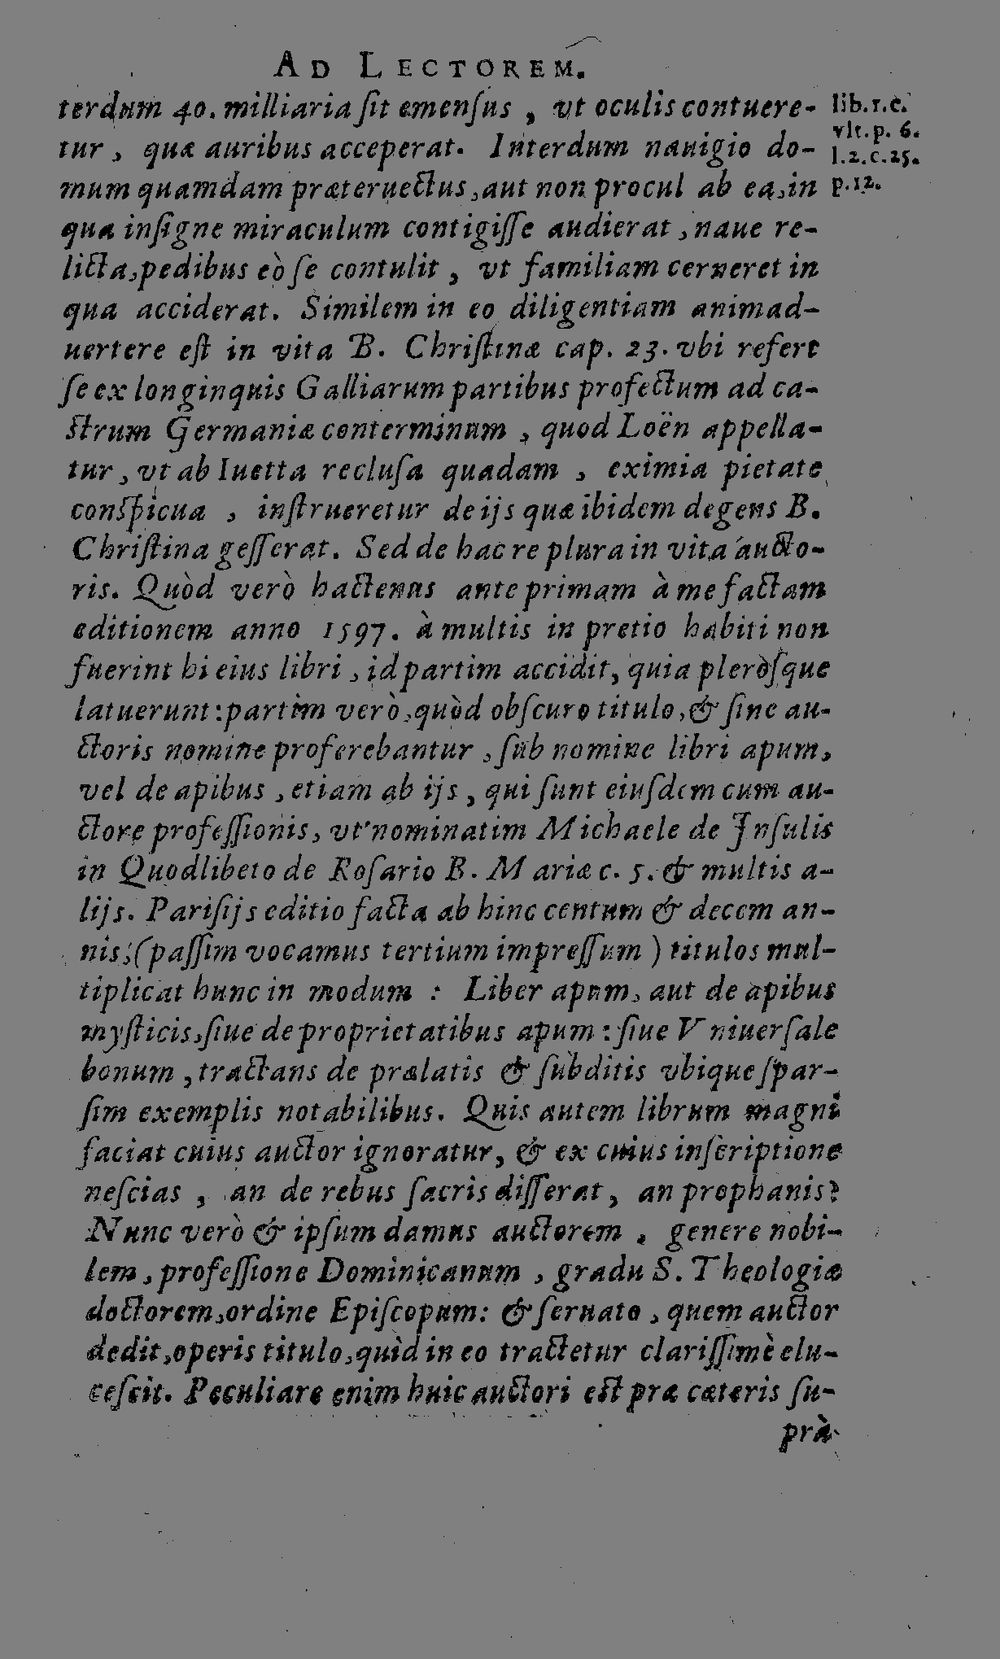 AD LECTOREM.
terdum 40. milliaria ſit emenſus, vt oculis contuere-
tur, quæ auribus acceperat. Interdum nauigio do-
mum quamdam præteruectus, aut non procul ab ea, in
qua inſigne miraculum contigiſſe audierat, naue re-
licta, pedibus eò ſe contulit, vt familiam cerneret in
qua acciderat. Similem in eo diligentiam animad-
uertere eſt in vita B. Chriſtinæ cap. 23. vbi refert
ſe ex longinquis Galliarum partibus profectum ad ca-
ſtrum Germaniæ conterminum, quod Loën appella-
tur, vt ab Iuetta recluſa quadam, eximia pietate
conſpicua, inſtrueretur de ijs quæ ibidem degens B.
Chriſtina geſſerat. Sed de hac re plura in vita aucto-
ris. Quòd verò hactenus ante primam à me factam
editionem anno 1597. à multis in pretio habiti non
fuerint hi eius libri, id partim accidit, quia pleròſque
latuerunt: partim verò, quòd obſcuro titulo, & ſine au-
ctoris nomine proferebantur, ſub nomine libri apum,
vel de apibus, etiam ab ijs, qui ſunt eiuſdem cum au-
ctore profeſſionis, vt nominatim Michaele de Inſulis
in Quodlibeto de Roſario B. Mariæ c. 5. & multis a-
lijs. Pariſijs editio facta ab hinc centum & decem an-
nis, (paſſim vocamus tertium impreſſum) titulos mul-
tiplicat hunc in modum: Liber apum, aut de apibus
myſticis, ſiue de proprietatibus apum: ſiue Vniuerſale
bonum, tractans de prælatis & ſubditis vbique ſpar-
ſim exemplis notabilibus. Quis autem librum magni
faciat cuius auctor ignoratur, & ex cuius inſcriptione
neſcias, an de rebus ſacris diſſerat, an prophanis?
Nunc verò & ipſum damus auctorem, genere nobi-
lem, profeſſione Dominicanum, gradu S. Theologiæ
doctorem, ordine Epiſcopum: & ſeruato, quem auctor
dedit, operis titulo, quid in eo tractetur clariſſimè elu-
ceſcit. Peculiare enim huic auctori eſt præ cæteris ſu-
prà
lib. 1. c.
vlt. p. 6.
l. 2. c. 25.
p. 12.